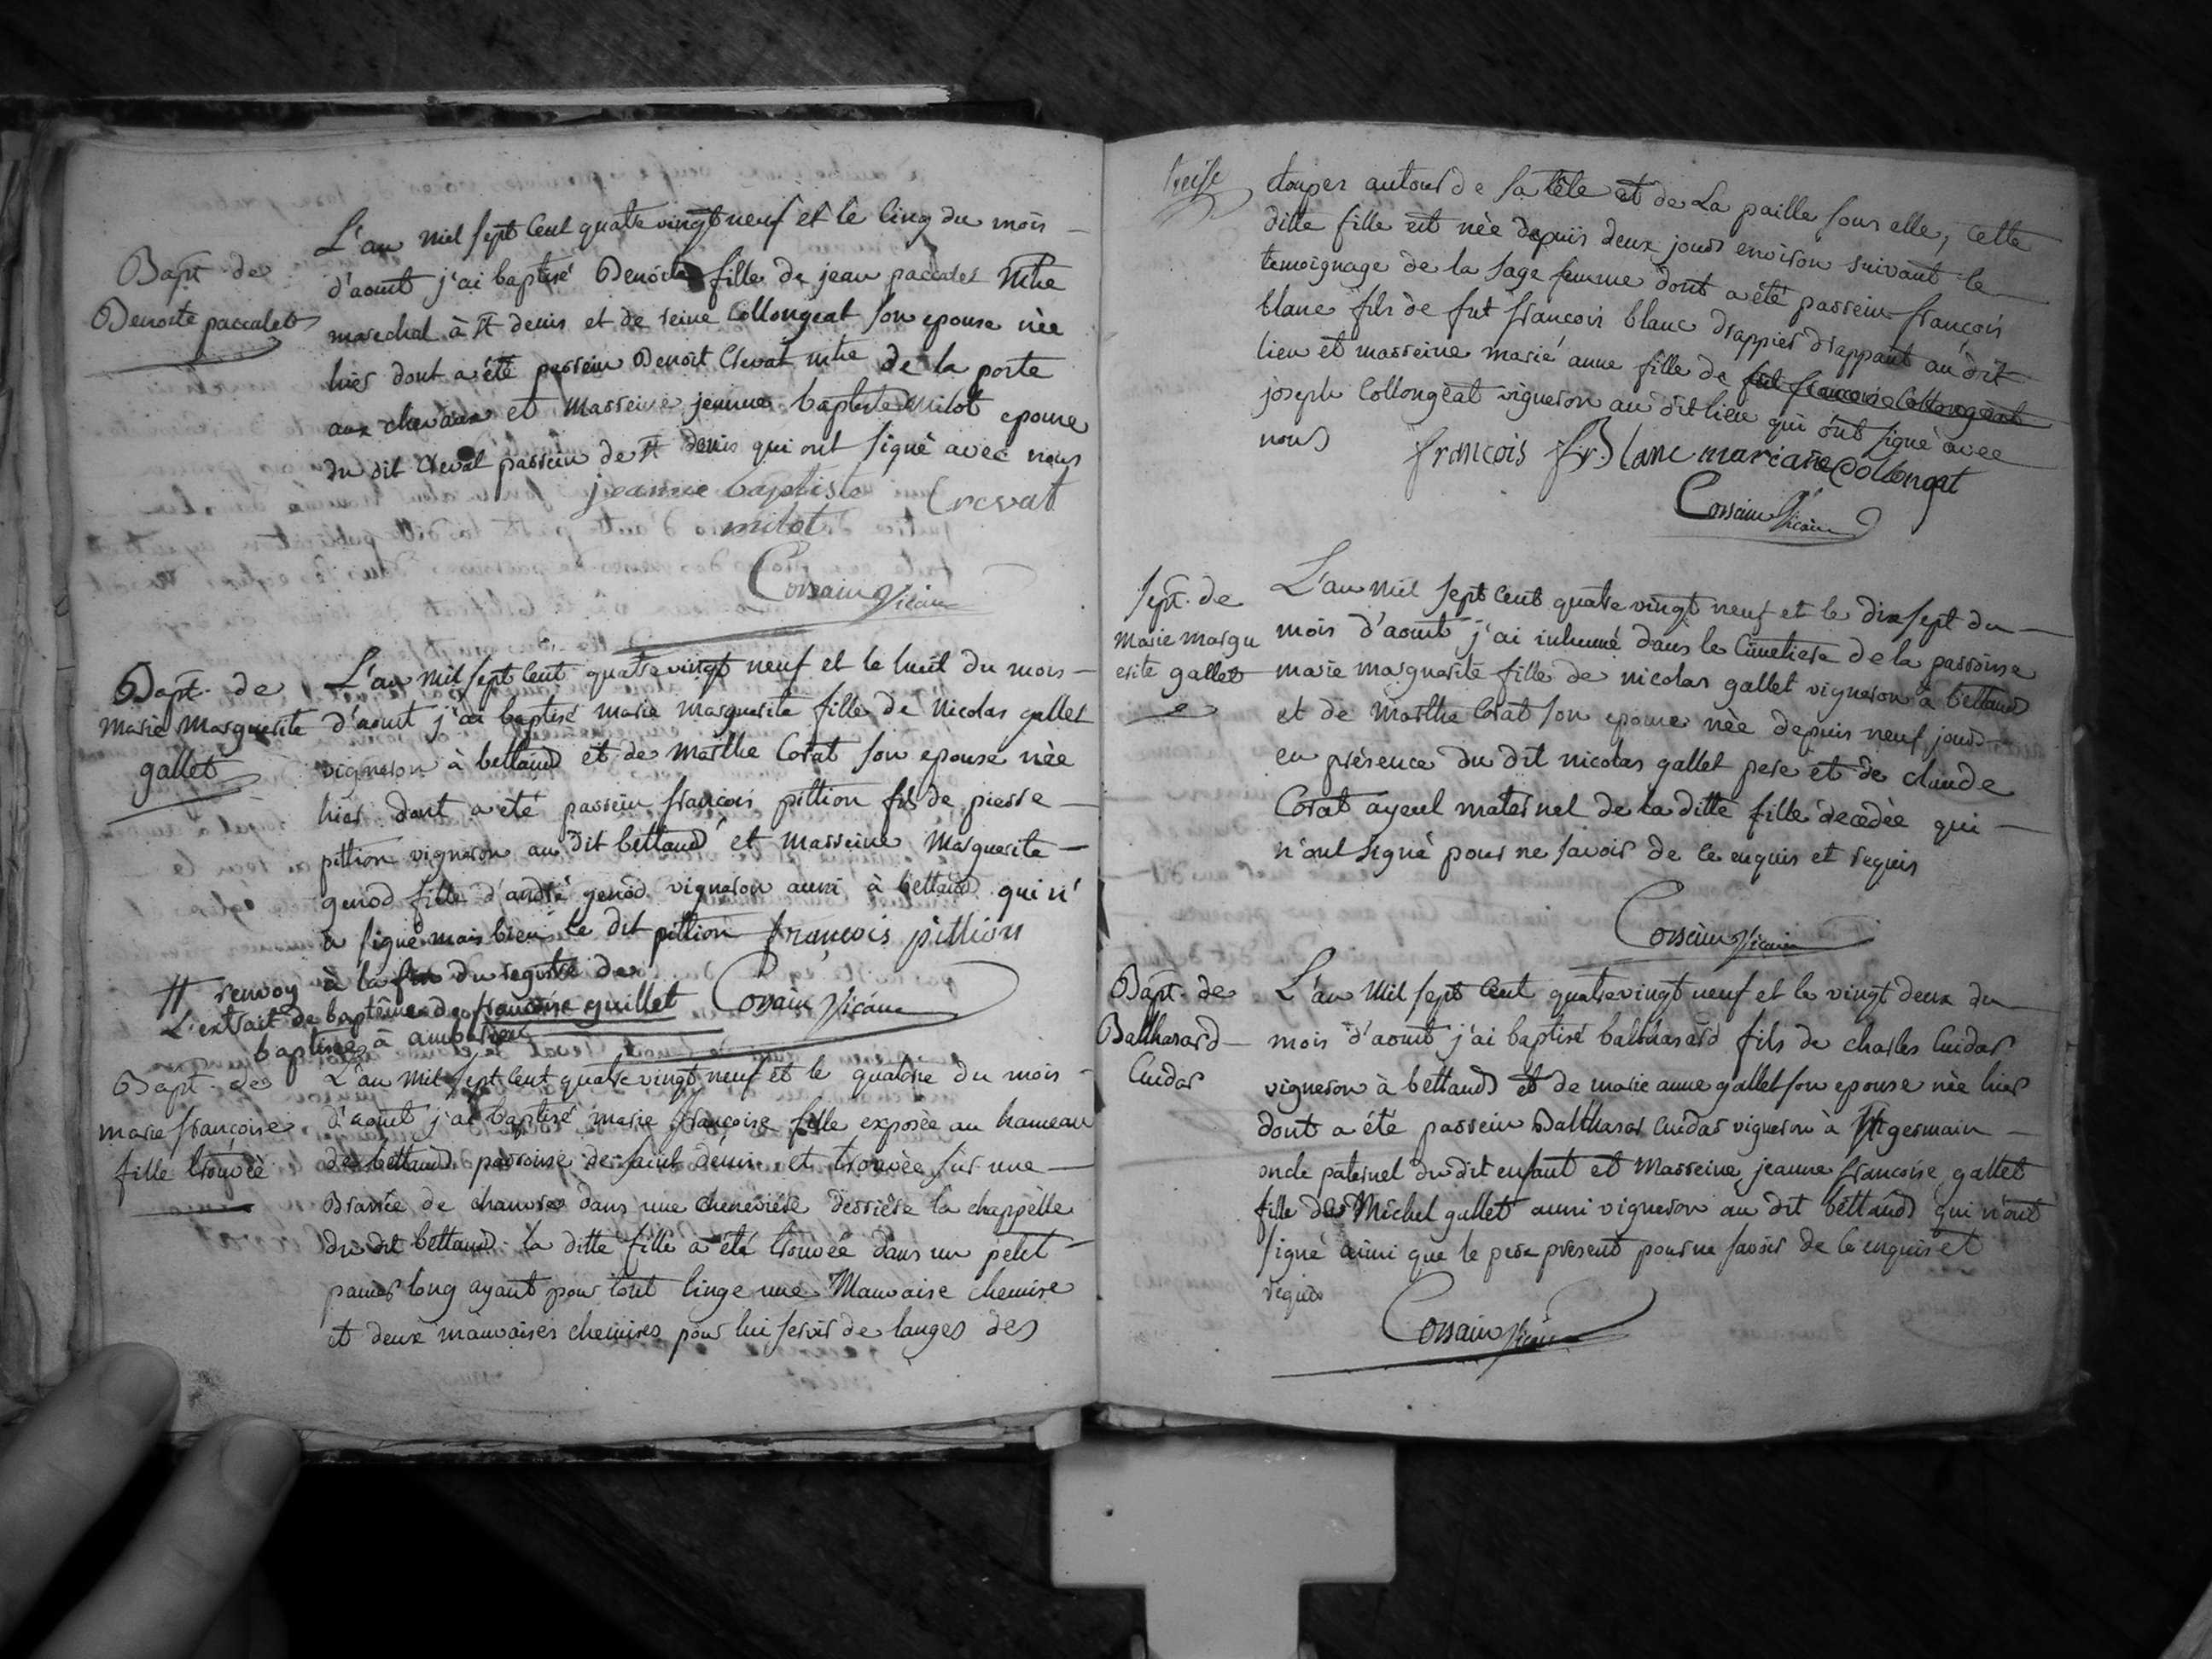 Bapt. de
Benoite paccalet
L'an mil sept cent quatre vingt neuf et le cinq du mois
d'aout j'ai baptisé Benoite fille de jean paccalet mtre
marechal à st denis et de reine Collongeat son epouse née
hier dont a été passein Benoit Crevat mtre de la porte
aux chevaux et Masseine jeanne baptiste Milot epouse
du dit Crevat passein de st denis qui ont signé avec nous
jeanne baptiste Crevat
milot
Corsain vicaire
Bapt. de
marie Marguerite
gallet
L'an mil sept cent quatre vingt neuf et le huit du mois
d'aout j'ai baptisé marie marguerite fille de nicolas gallet
vigneron à bettand et de marthe Corat son epouse née
hier dont a été passein francois pittion fils de pierre
pittion vigneron au dit bettand et masseine Marguerite
genod fille d'andré genod vigneron aussi à bettand qui n'
a signé mais bien le dit pittion françois pittion
renvoy à la fin du registre de
L'extrait de baptême de francoise guillet
baptisée à
Corsain Vicaire
Bapt. de
marie françoise
fille trouvée
L'an mil sept cent quatre vingt neuf et le quatorze du mois
d'aout j'ai baptisé marie françoise fille exposée au hameau
de bettand parroisse de saint denis et trouvée sur une
Brassée de chanvre dans une cheneviere derriere la chappelle
du dit bettand. la ditte fille a été trouvée dans un petit
panier long ayant pour tout linge une Mauvaise chemise
et deux mauvaises chemises pour lui servir de langes des
treise
etoupes autour de sa tête et de La paille sous elle, cette
ditte fille est née depuis deux jours environ suivant le
temoignage de la sage femme dont a été passein françois
blanc fils de fut francois blanc drappier drappant au dit
lieu et masseine marie anne fille de fut francois Collongeat
joseph Collongeat vigneron au dit lieu qui ont signé avec
nous francois Blanc mariane Collongat
Corsain Vicaire
Sept. de
marie margu
erite gallet
L'an mil sept cent quatre vingt neuf et le dix sept du
mois d'aout j'ai inhumé dans le Cimetiere de la parroisse
marie marguerite fille de nicolas gallet vigneron à bettand
et de Marthe Corat son epouse née depuis neuf jours
en présence du dit nicolas gallet pere et de claude
Corat ayeul maternel de la ditte fille decedée qui
n'ont signé pour ne savoir de ce enquis et requis
Corsain Vicaire
Bapt. de
Balthasard
Cuidar
L'an Mil sept cent quatre vingt neuf et le vingt deux du
mois d'aout j'ai baptisé balthasard fils de charles Cuidar
vigneron à bettand et de marie anne gallet son epouse née hier
dont a été passein Balthasar Cuidar vigneron à st germain
oncle paternel du dit enfant et Masseine jeanne francoise gallet
fille de Michel gallet aussi vigneron au dit bettand qui n'ont
signé ainsi que le pere present pour ne savoir de ce enquis et
requis
Corsain Vicaire